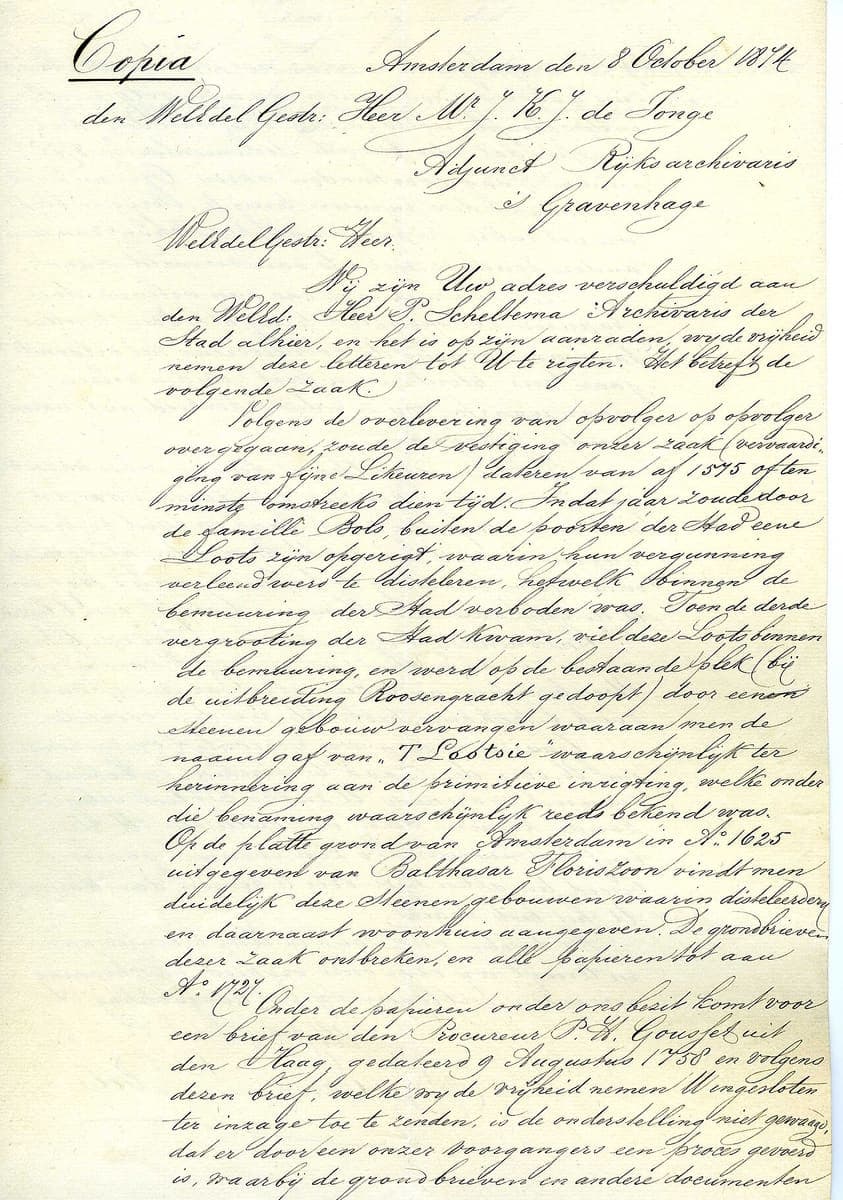 Copia
Amsterdam den 8 October 1874
den WelEdel Gestr: Heer Mr. J. K. J. de Jonge
Adjunct Rijksarchivaris
's Gravenhage
WelEdelGestr: Heer.
Wij zijn Uw adres verschuldigd aan
den WelEd: Heer P. Scheltema Archivaris der
Stad alhier, en het is op zijn aanraden, wy de vrijheid
nemen deze letteren tot U te rigten. Het betreft de
volgende zaak.
Volgens de overlevering van opvolger op opvolger
overgegaan, zoude de vestiging onzer zaak (vervaardi„
ging van fijne Likeuren) dateren van af 1575 of ten
minste omstreeks dien tijd. In dat jaar zoude door
de famille Bols, buiten de poorten der Stad eene
Loots zijn opgerigt, waarin hun vergunning
verleend werd te disteleren, hetwelk binnen de
bemuuring der Stad verboden was. Toen de derde
vergrooting der Stad kwam, viel deze Loots binnen
de bemuuring, en werd op de bestaande plek (bij
de uitbreiding Roosengracht gedoopt) door eenen
steenen gebouw vervangen waaraan men de
naam gaf van „T Lootsie" waarschijnlijk ter
herinnering aan de primitieve inrigting, welke onder
die benaming waarschijnlijk reeds bekend was.
Op de platte grond van Amsterdam in Ao. 1625
uitgegeven van Balthasar Floriszoon vindt men
duidelijk deze steenen gebouwen waarin disteleerdery
en daarnaast woonhuis aangegeven. De grondbrieven
dezer zaak ontbreken, en alle papieren tot aan
Ao. 1727.
Onder de papieren onder ons bezit komt voor
een brief van den Procureur P. H. Gousset uit
den Haag, gedateerd 9 Augustus 1758 en volgens
dezen brief, welke wy de vrijheid nemen U ingesloten
ter inzage toe te zenden, is de onderstelling niet gewaagd,
dat er door een onzer voorgangers een proces gevoerd
is, waarbij de grondbrieven en andere documenten